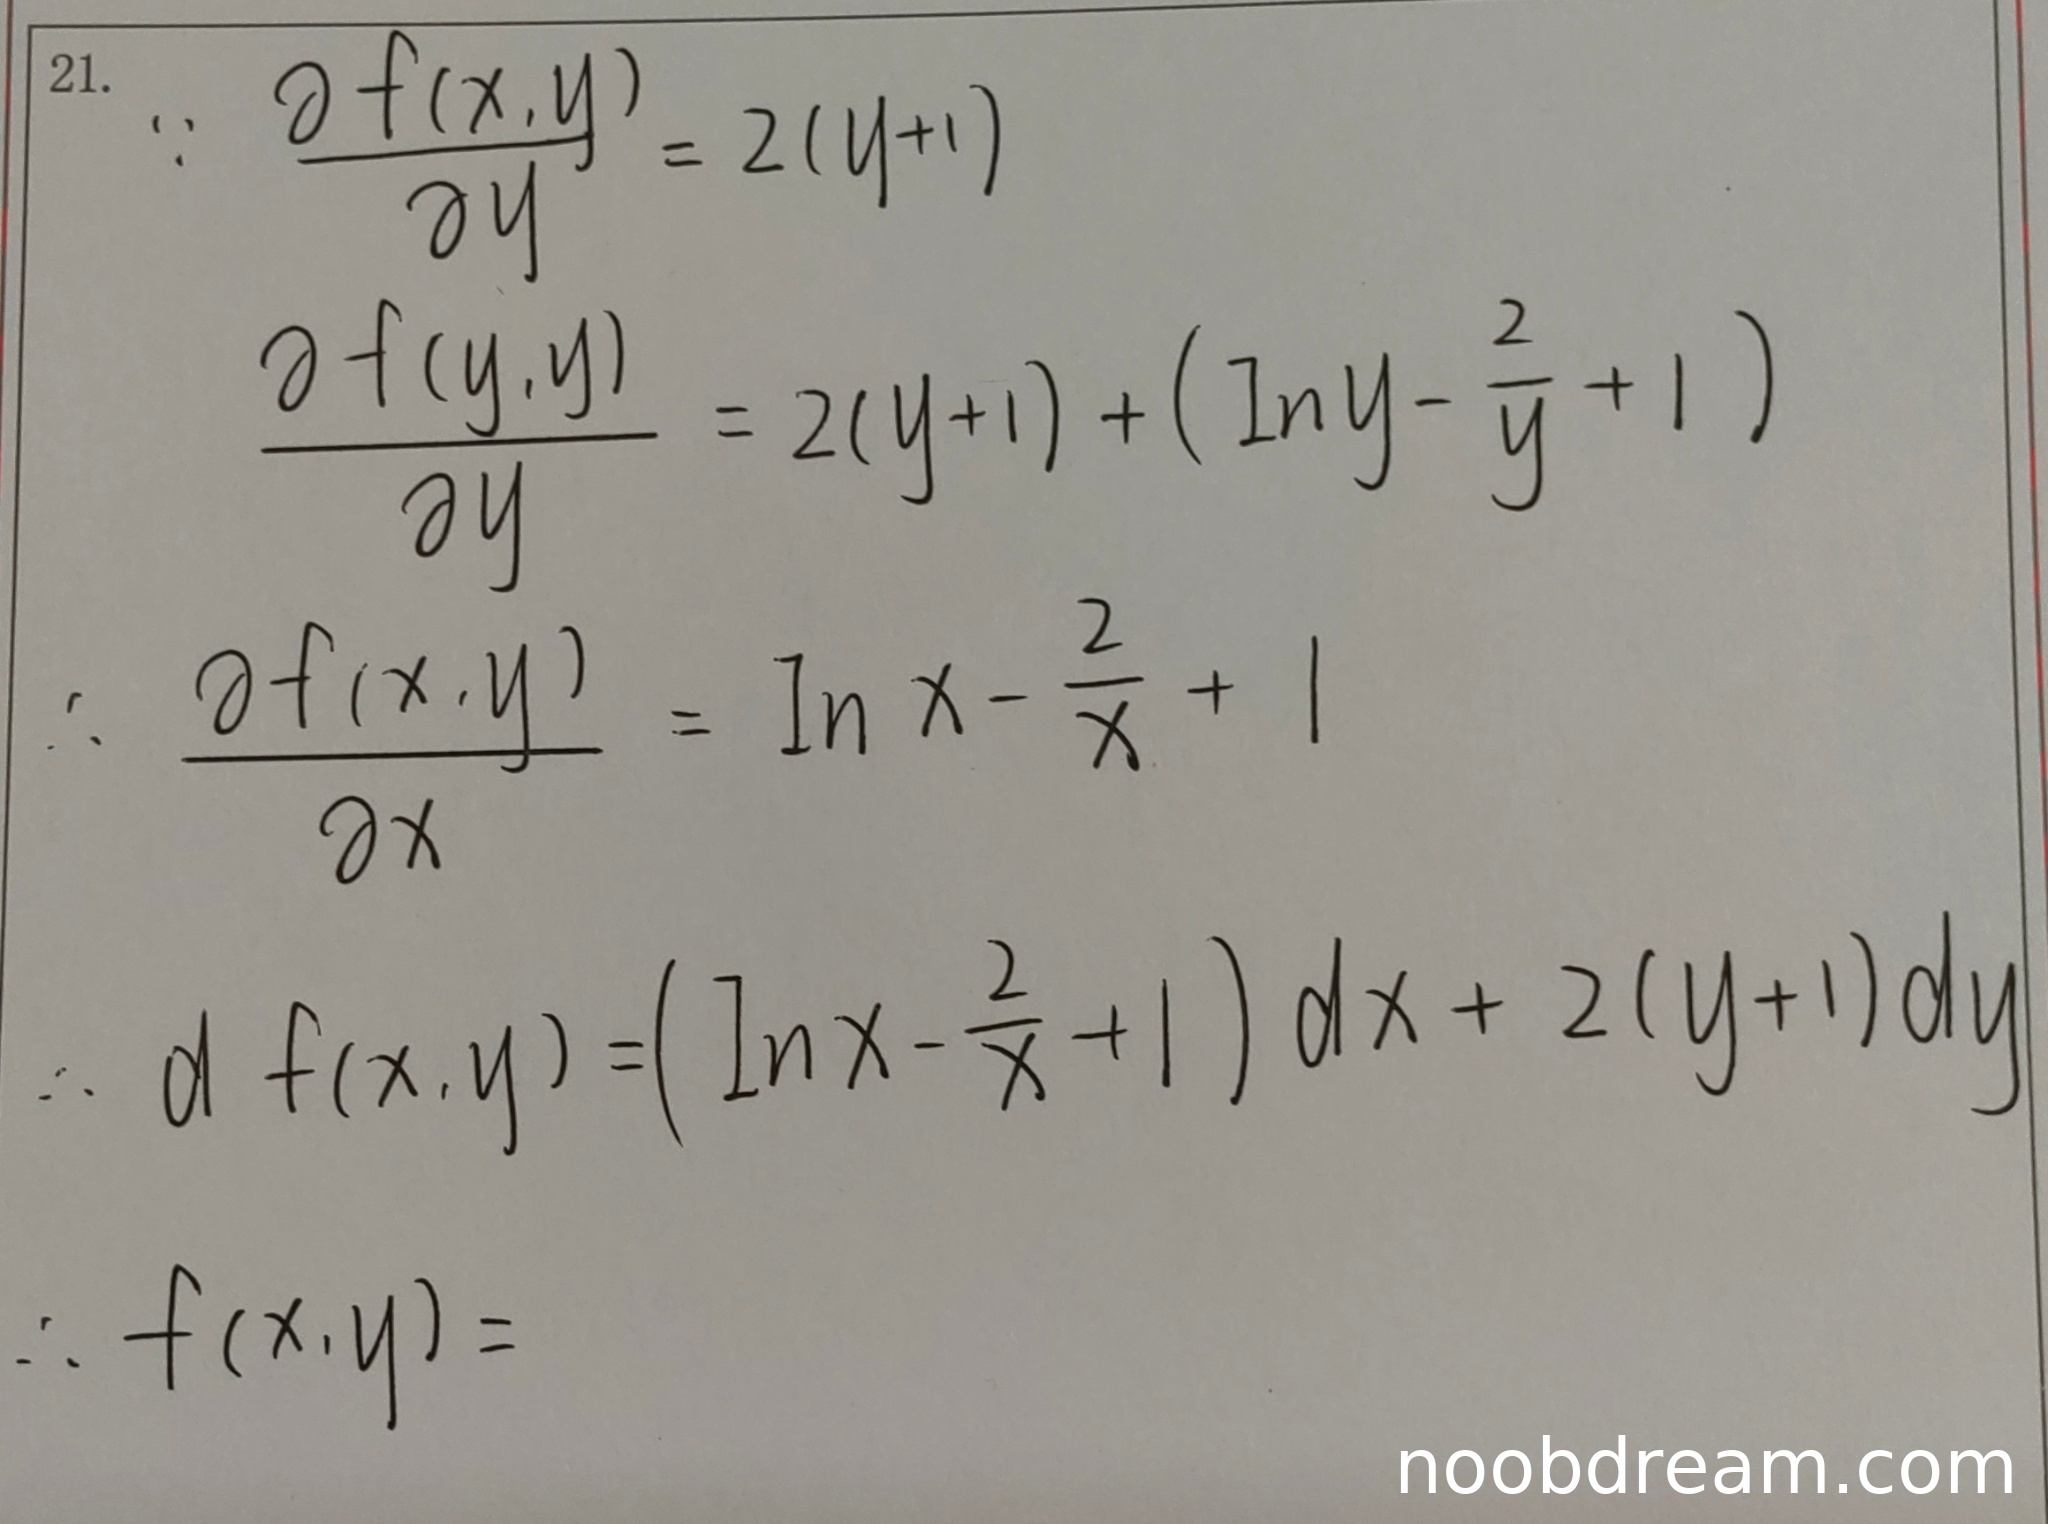 21.
∵ ∂f(x,y)/∂y = 2(y+1)
∂f(y,y)/∂y = 2(y+1) + (ln y - 2/y + 1)
∴ ∂f(x,y)/∂x = ln x - 2/x + 1
∴ d f(x,y) = (ln x - 2/x + 1) dx + 2(y+1) dy
∴ f(x,y) =
noobdream.com